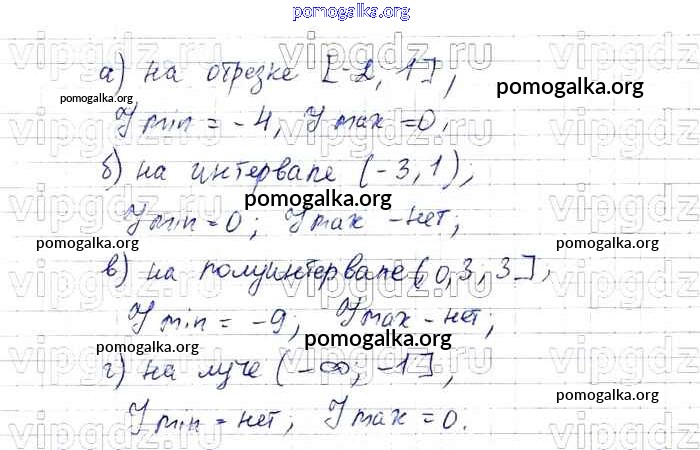 pomogalka.org
vipgdz.ru vipgdz.ru
а) на отрезке [-2, 1],
pomogalka.org
pomogalka.org
Y min = -4, Y max = 0,
vipgdz.ru vipgdz.ru
б) на интервале (-3, 1);
pomogalka.org
Y min = 0; Y max - нет;
vipgdz.ru vipgdz.ru
pomogalka.org pomogalka.org
в) на полуинтервале [0,3, 3];
Y min = -9; Y max - нет;
vipgdz.ru vipgdz.ru
pomogalka.org
pomogalka.org
г) на луче (-∞, -1],
vipgdz.ru vipgdz.ru
pomogalka.org
Y min = нет; Y max = 0.
pomogalka.org
pomogalka.org
vipgdz.ru vipgdz.ru